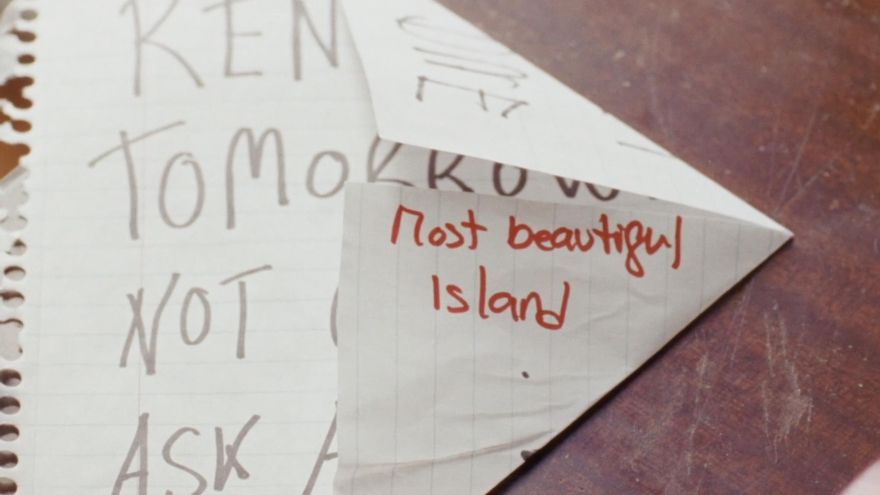 KEN
TOMORROW
NOT
ASK A
Most beautiful
Island